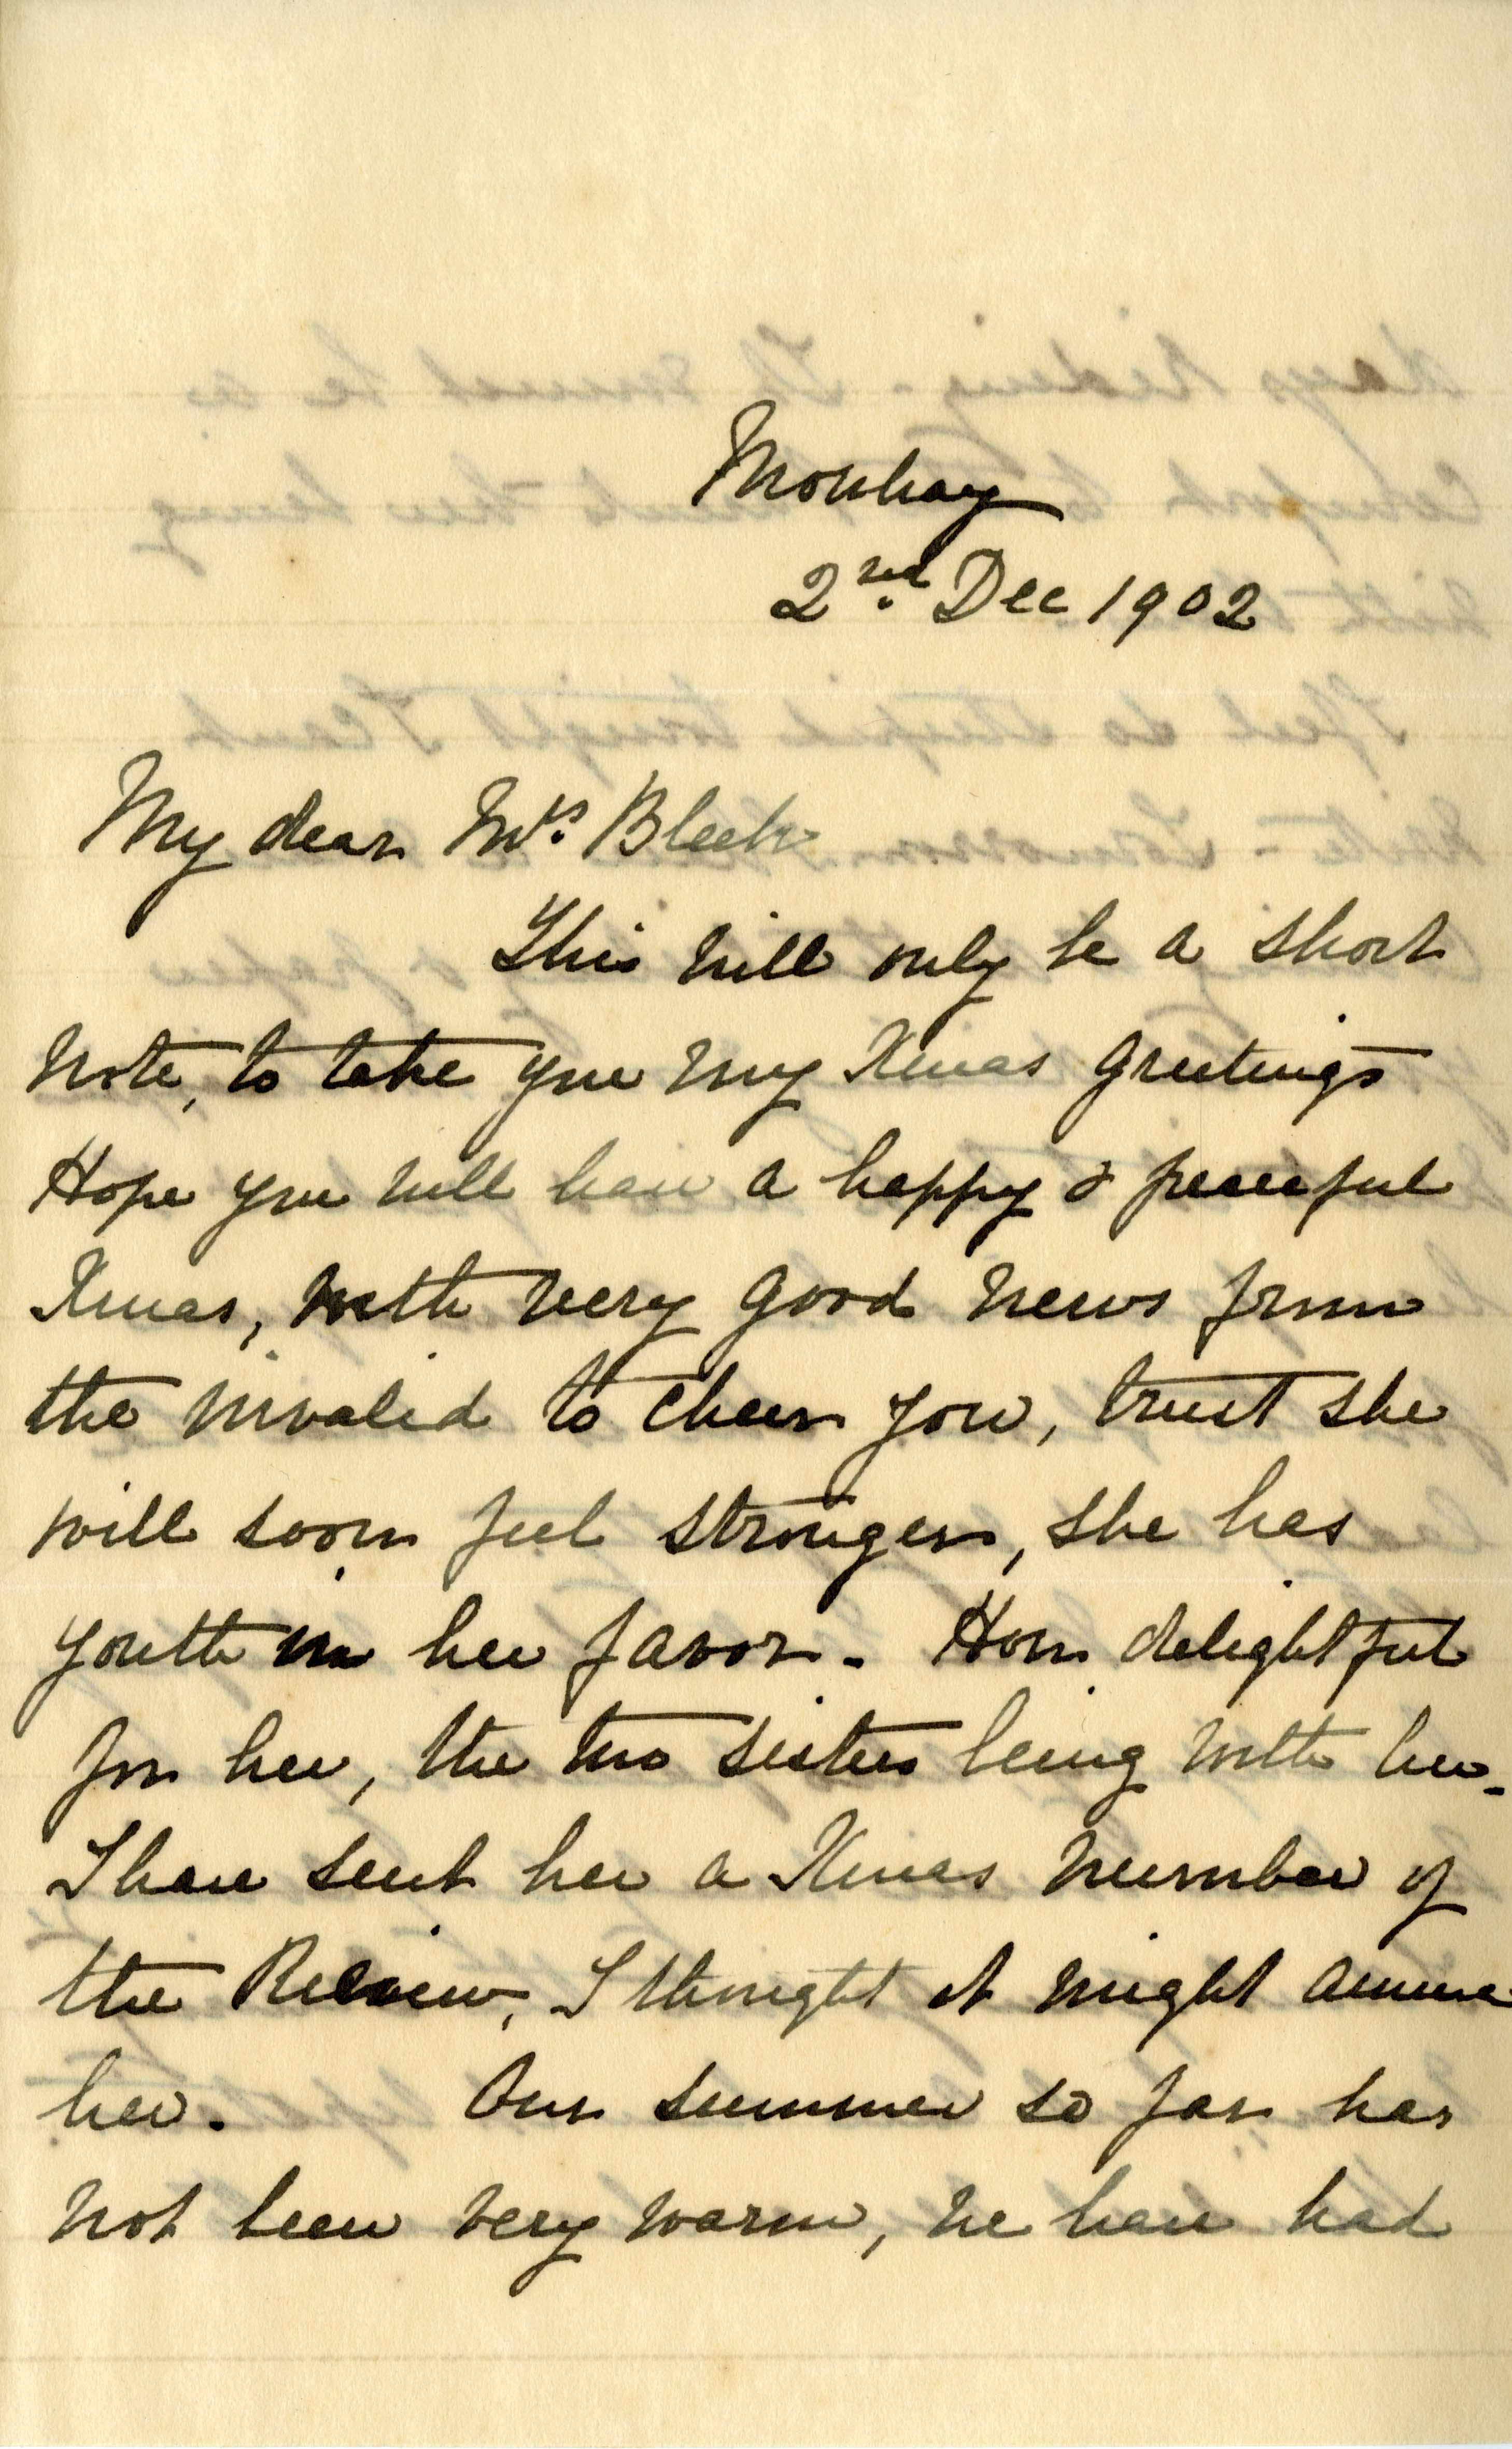 Mowbray
2nd Dec 1902
My dear Mrs. Bleek
This will only be a short
note, to take you my Xmas greetings
Hope you will have a happy & peaceful
Xmas, with very good news from
the invalid to cheer you, trust she
will soon feel stronger, she has
youth in her favor. How delightful
for her, the two sisters being with her.
I have sent her a Xmas number of
the Review, I thought it might amuse
her. Our summer so far has
not been very warm, we have had